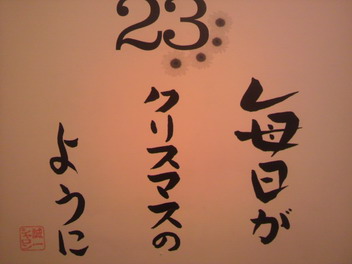 23
毎日が
クリスマスの
ように